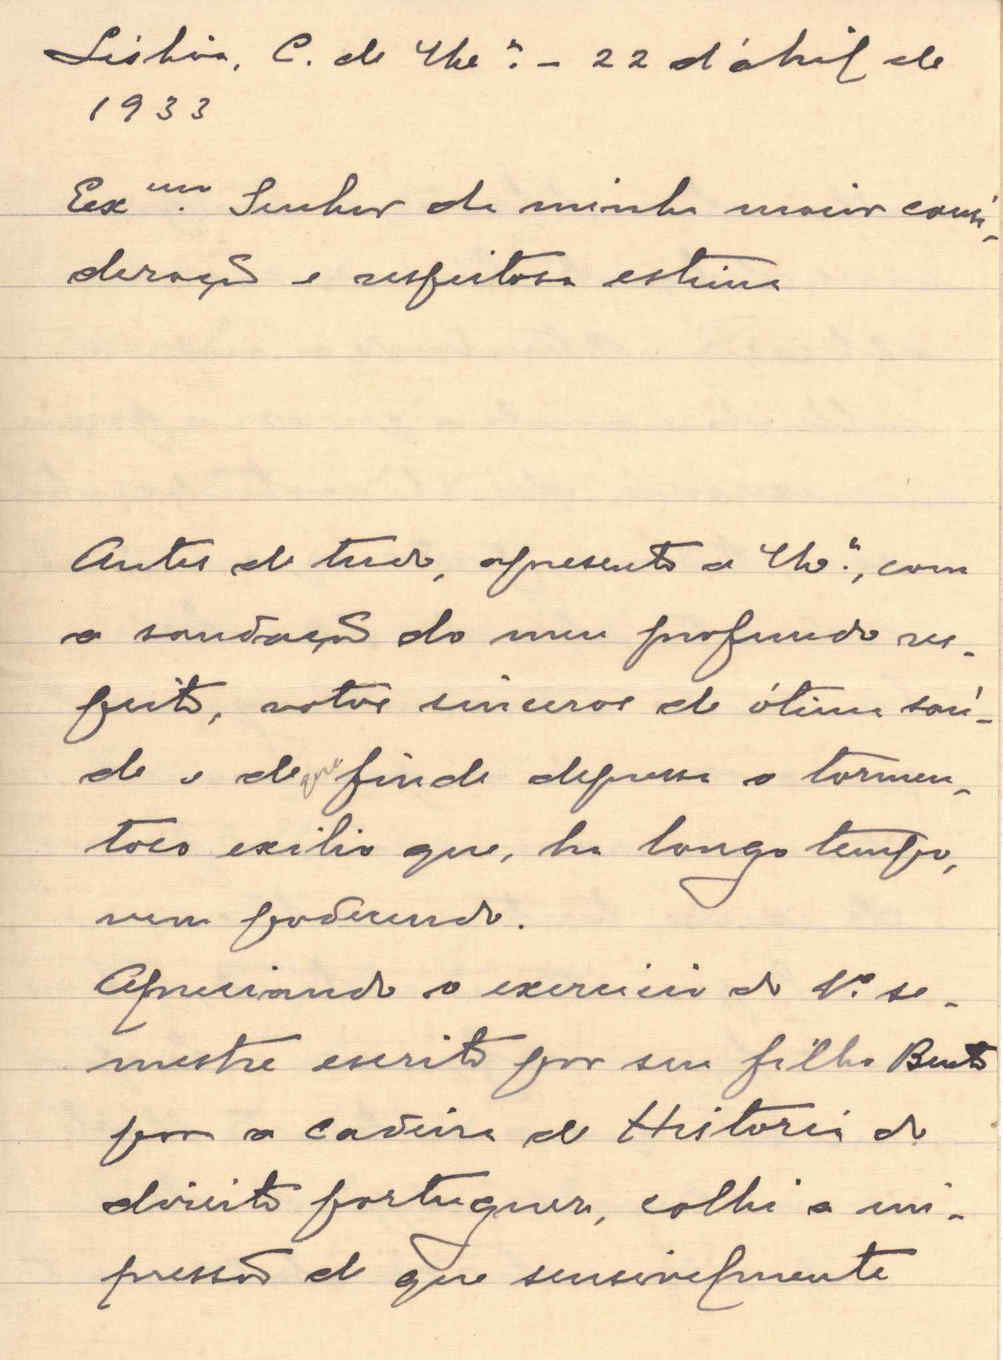 Lisboa, C. de V. Ex.ª - 22 d'abril de
1933
Exmo. Senhor de minha maior consi-
deração e respeitosa estima
Antes de tudo, apresento a V. Ex.ª, com
a saudação do meu profundo res-
peito, votos sinceros de ótima saú-
de e de que finde depressa o tormen-
toso exilio que, ha longo tempo,
vem padecendo.
Apreciando o exercicio do 1.º se-
mestre escrito por seu filho Bento
para a cadeira de Historia do
direito portuguez, colhi a im-
pressão de que sensivelmente